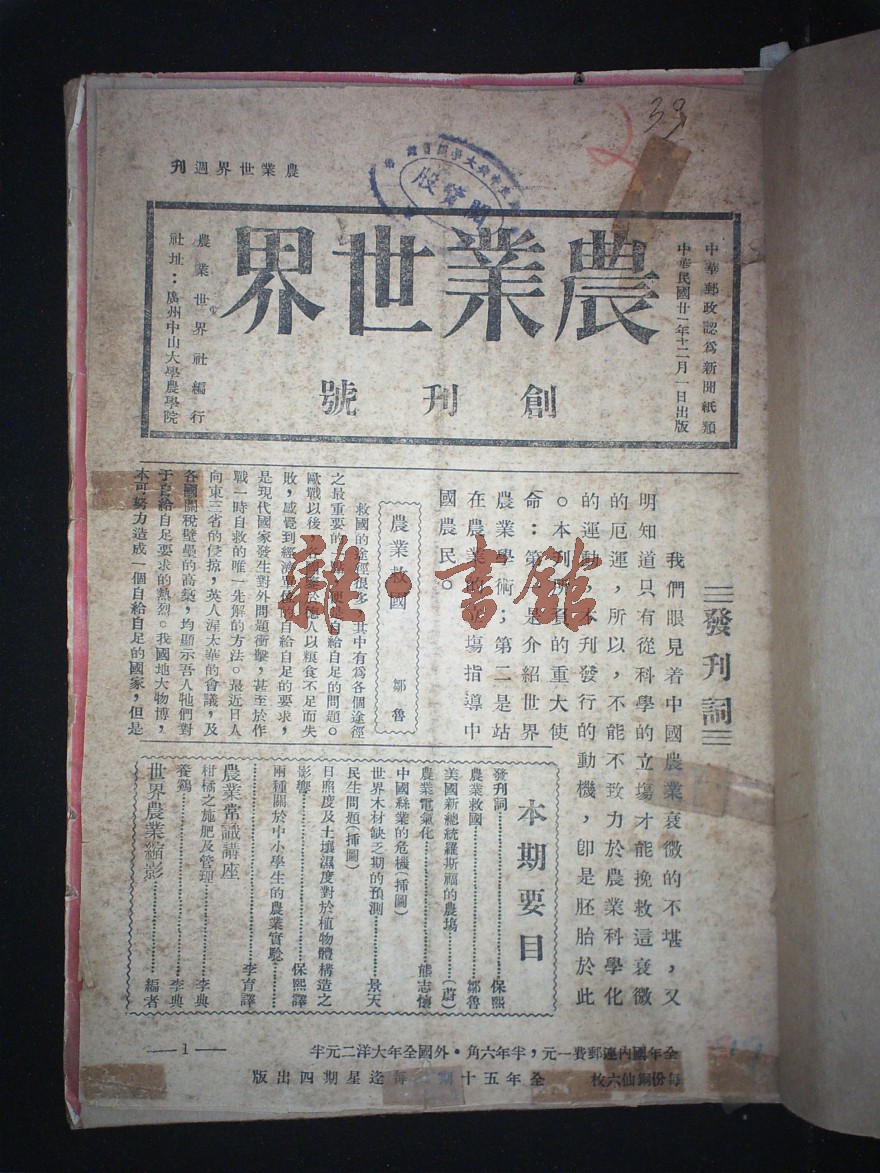 39
農業世界週刊
中華郵政認為新聞紙類
中華民國廿一年十二月一日出版
農業世界
創刊號
農業世界社編行
社址：廣州中山大學農學院
閱覽股
發刊詞
我們眼見着中國農業衰微的不堪，又
明知道只有從科學的立塲才能挽救這衰微
的厄運，所以，不能不致力於農業科學化
的運動。本刊發行的動機，卽是胚胎於此
。本刊所負的重大使
命：第一是介紹世界
農業學術；第二是站
在農業的立塲指導中
國農民。
農業救國
鄒魯
救國的途徑很多，其中有為各個途徑
之最重要的，便是自給自足的問題。
歐戰以後，各國鑒於德人以糧食不足而失
敗，感覺到經濟單位的自給自足的要求，
是現代國家發生對外問題衝擊，甚至於作
戰一時自救的唯一先解的方法。最近日人
向東三省的侵掠，英人渥太華的會議，及
各國關稅壁壘的高築，均顯示吾人牠們對
于自給自足要求的熱烈。我國地大物博，
本可努力造成一個自給自足的國家，但是
本期要目
發刊詞……保熙
農業救國……鄒魯
美國新總統羅斯福的農塲……（蔚）
農業電氣化……熊志懷
中國絲業的危機（揷圖）
世界木材缺乏期的預測……景天
民生問題（揷圖）
日照度及土壤濕度對於植物體構造之
影響……保熙譯
兩種關於中小學生的農業實驗
……李育譯
農業常識講座
柑橘之施肥及管理……李典
養鷄……李典
世界農業縮影……編者
全年國內連郵費一元，半年六角．外國全年大洋二元半
每份銅仙六枚
全年五十期
每逢星期四出版
—1—
雜·書館